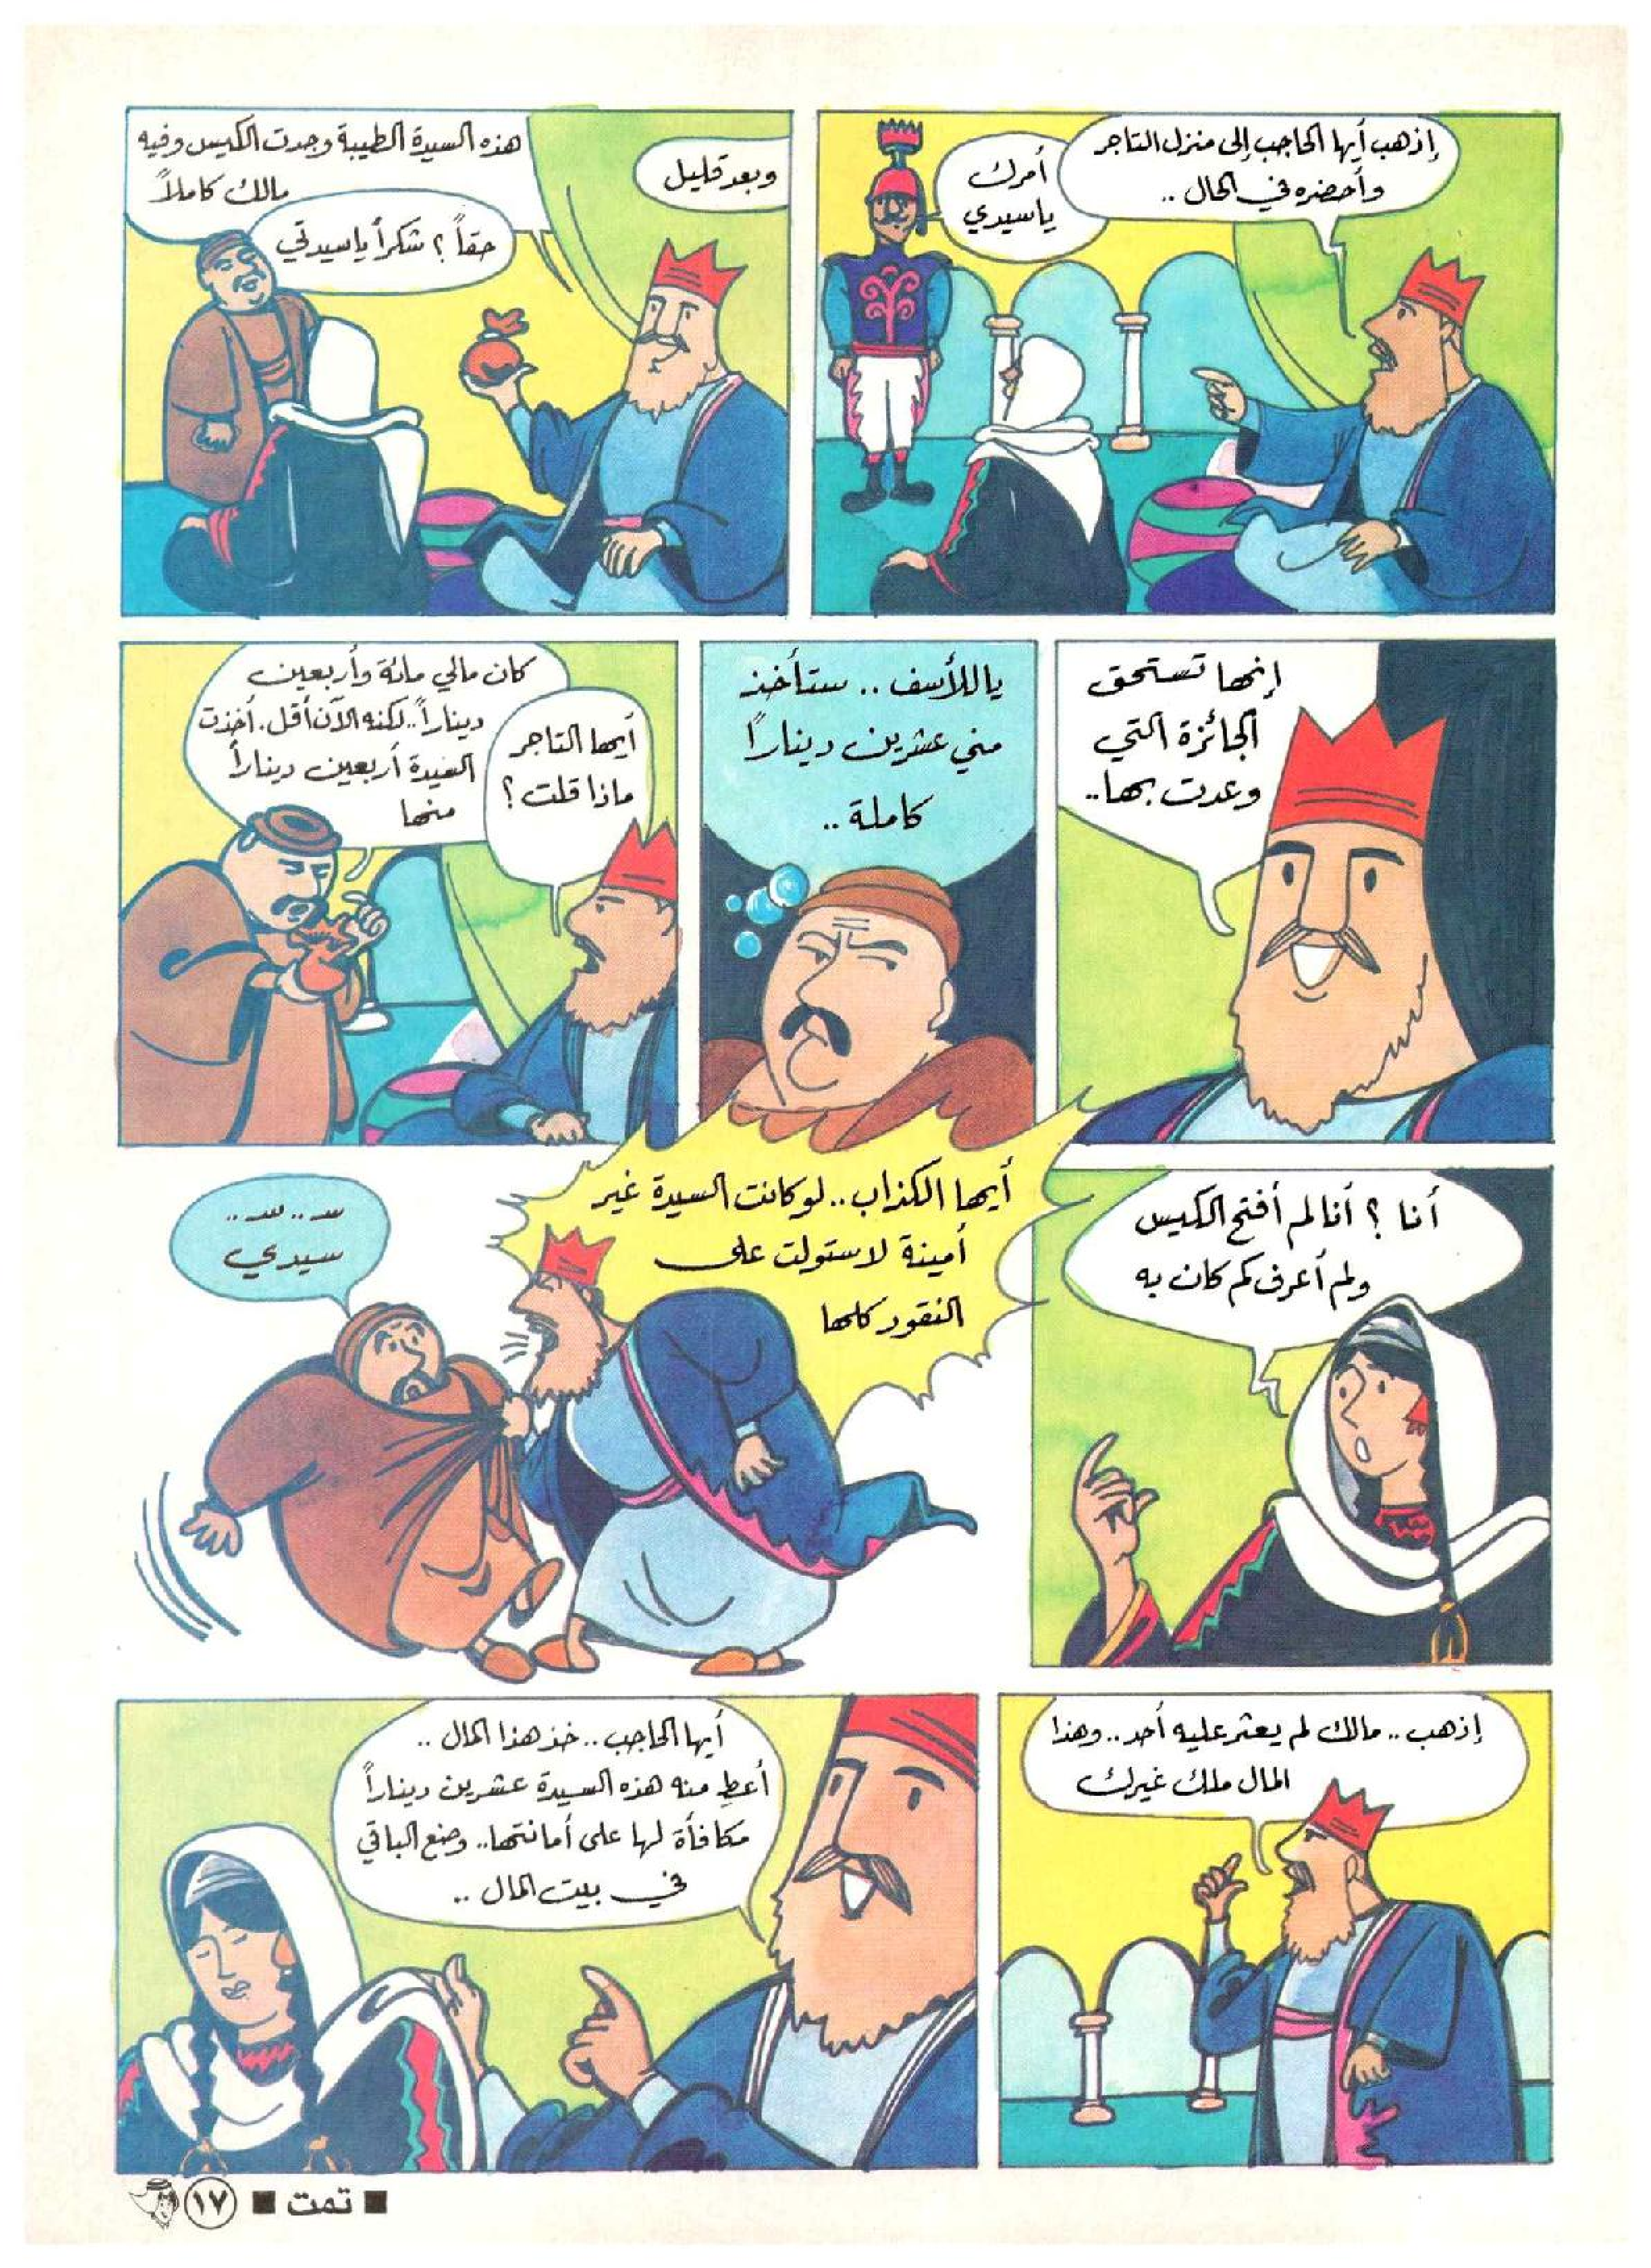 إذهب أيها الحاجب إلى منزل التاجر
وأحضره في الحال ..
أمرك
ياسيدي
وبعد قليل
هذه السيدة الطيبة وجدت الكيس وفيه
مالك كاملاً
حقاً ؟ شكراً ياسيدتي
إنها تستحق
الجائزة التي
وعدت بها..
ياللأسف .. ستأخذ
مني عشرين ديناراً
كاملة ..
أيها التاجر
ماذا قلت ؟
كان مالي مائة وأربعين
ديناراً.. لكنه الآن أقل. أخذت
السيدة أربعين ديناراً
منها
أنا ؟ أنا لم أفتح الكيس
ولم أعرف كم كان به
أيها الكذاب.. لو كانت السيدة غير
أمينة لاستولت على
النقود كلها
سـ .. سـ ..
سيدي
إذهب .. مالك لم يعثر عليه أحد .. وهذا
المال ملك غيرك
أيها الحاجب .. خذ هذا المال ..
أعطِ منه هذه السيدة عشرين ديناراً
مكافأة لها على أمانتها.. وضع الباقي
في بيت المال ..
■ تمت ■ ١٧